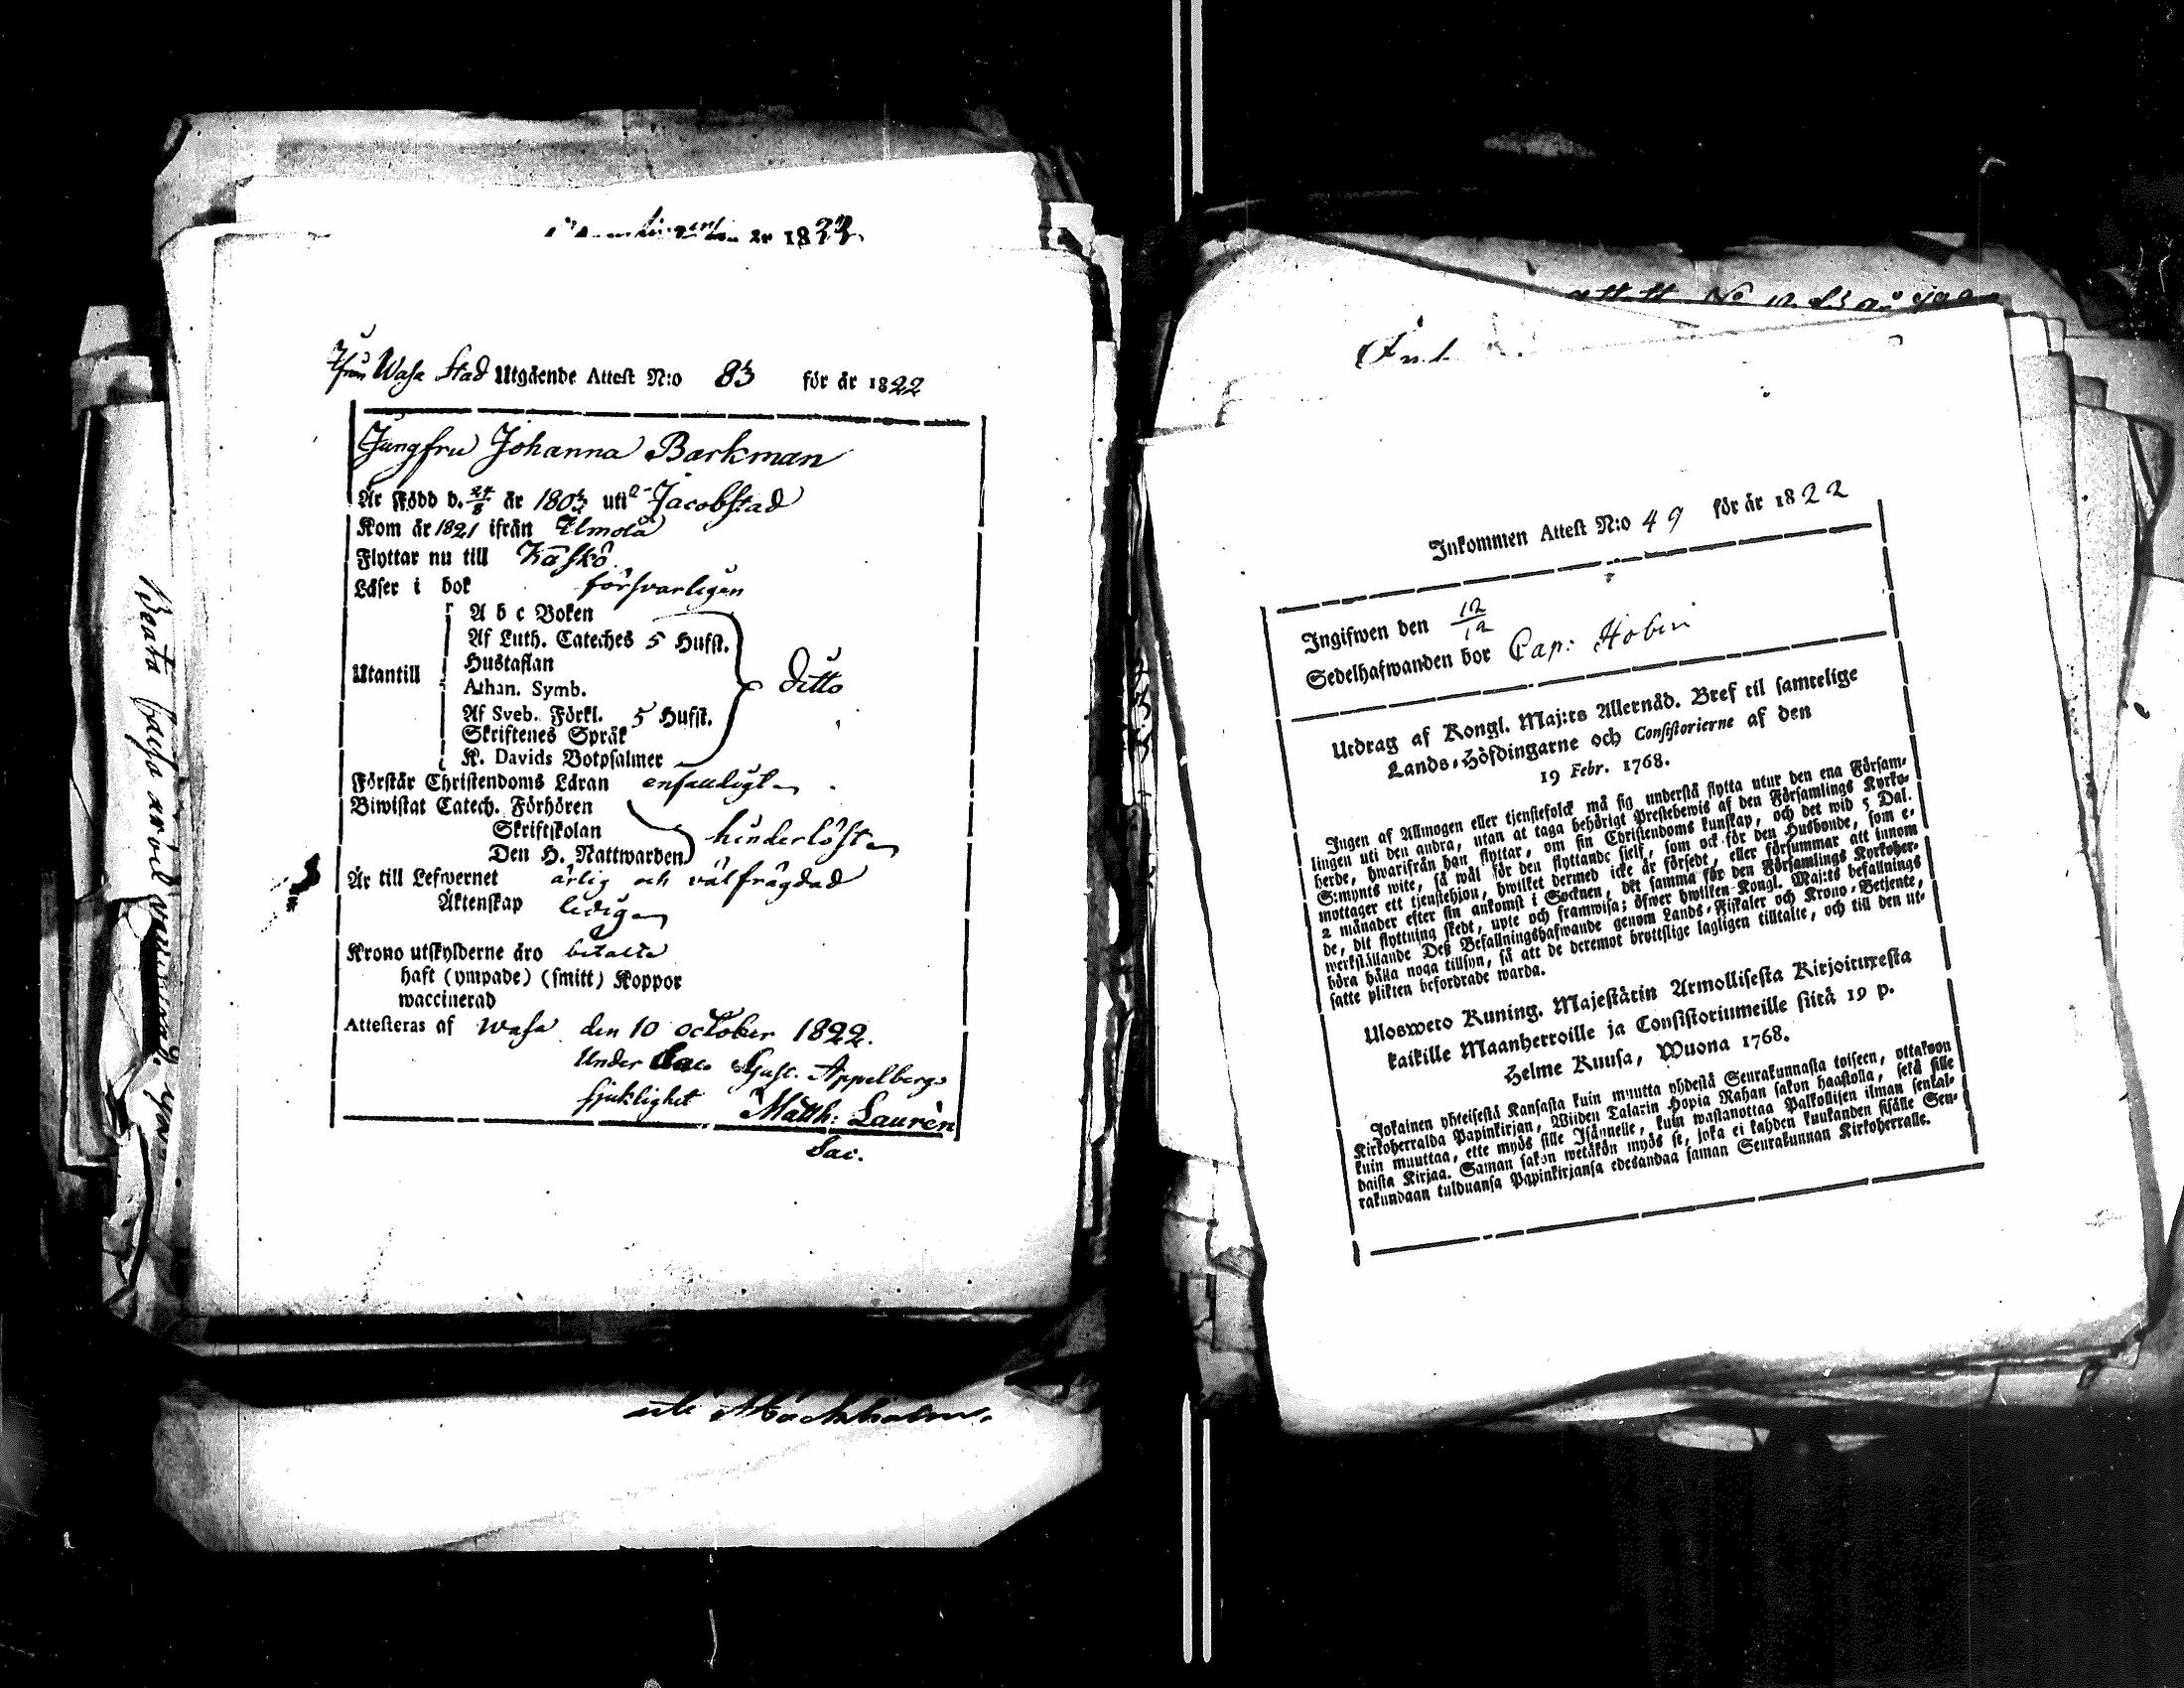 år 1823.
Ifrån Wasa Stad Utgående Attest N:o 83 för år 1822
Jungfru Johanna Barkman
Är Född d. 24/8 år 1803 uti Jacobstad
Kom år 1821 ifrån Ilmola
Flyttar nu till Kaskö
Läser i bok försvarligen
A b c Boken
Af Luth. Cateches 5 Hufst.
Hustaflan
Utantill
Athan. Symb.
ditto
Af Sveb. Förkl. 5 Hufst.
Skriftenes Språk
K. Davids Botpsalmer
Förstår Christendoms Läran enfaldigt
Biwistat Catech. Förhören
Skriftskolan
hinderlöst
Den H. Nattwarden
Är till Lefwernet ärlig och välfrägdad
Äktenskap ledig
Krono utskylderne äro betalte
haft (ympade) (smitt) Koppor
waccinerad
Attesteras af Wasa den 10 October 1822.
Under Gust. Appelbergs
sjuklighet Matth: Laurén
Sac.
Beata
uti
Inkommen Attest N:o 49 för år 1822
Ingifwen den 12/12
Sedelhafwanden bor Cap: Hobin
Utdrag af Kongl. Maj:ts Allernåd. Bref til samtelige
Lands-Höfdingarne och Consistorierne af den
19 Febr. 1768.
Ingen af Allmogen eller tjenstefolck må sig understå flytta utur den ena Församlingen
lingen uti den andra, utan at taga behörigt Prestebewis af den Församlings Kyrko-
herde, hwarifrån han flyttar, om sin Christendoms kunskap, och det wid 5 Dal.
S:mynts wite, så wäl för den flyttande sielf, som ock för den Husbonde, som e-
mottager ett tjenstehjon, hwilket dermed icke är försedt, eller försummar att innom
2 månader efter sin ankomst i Socknen, det samma för den Församlings Kyrkoher-
de, dit flyttning skedt, upte och framwisa; öfwer hwilken Kongl. Maj:ts befallnings
werkställande Deß Befallningshafwande genom Lands-Fiskaler och Krono-Betjente,
böra hålla noga tillsyn, så att de deremot brottslige lagligen tilltalte, och till den ut-
satte plikten befordrade warda.
Uloswero Kuning. Majestätin Armollisesta Kirjoituxesta
kaikille Maanherroille ja Consistoriumeille siitä 19 p.
Helme Kuusa, Wuona 1768.
Jokainen yhteisestä Kansasta kuin muutta yhdestä Seurakunnasta toiseen, ottakoon
Kirkoherralda Papinkirjan, Wiiden Talarin Hopia Rahan sakon haastolla, sekä sille
kuin muuttaa, ette myös sille Isännelle, kuin wastanottaa Palkollisen ilman senkal-
daista Kirjaa. Saman sakon wetäkön myös se, joka ei kahden kuukanden sisälle Seu-
rakundaan tulduansa Papinkirjansa edesandaa saman Seurakunnan Kirkoherralle.